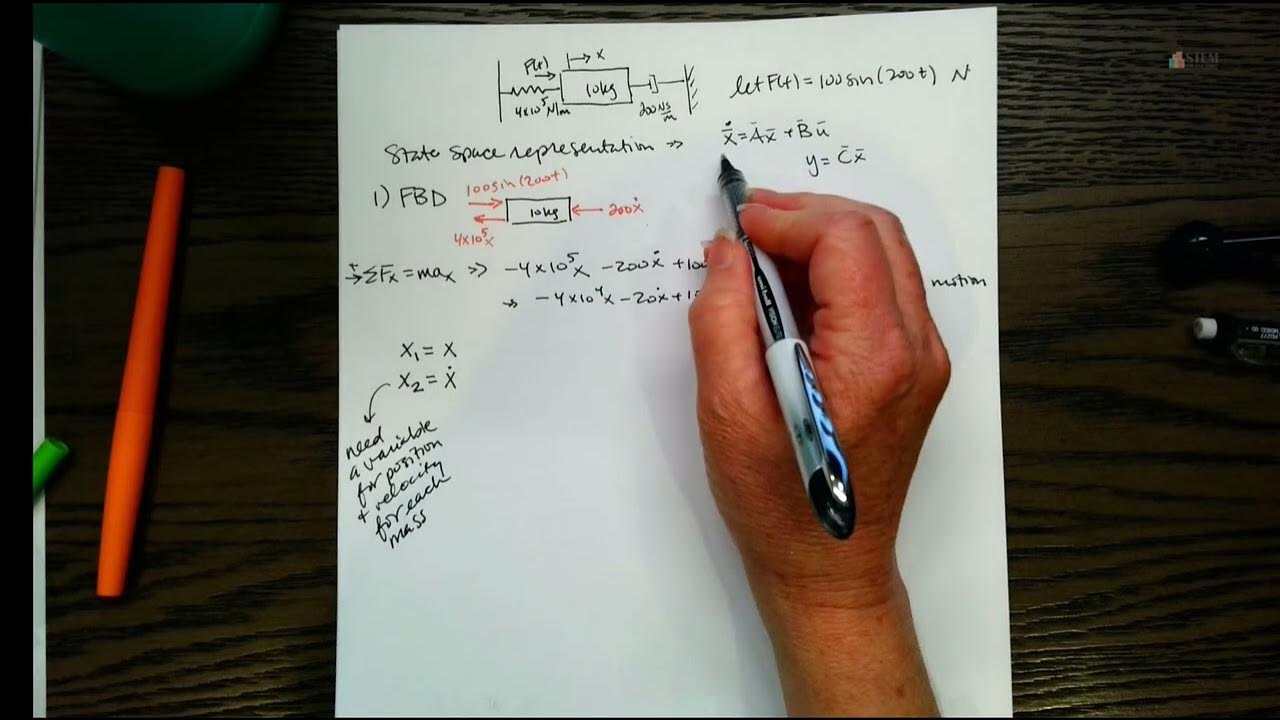 F(t) → x
10kg
4x10⁵N/m
200 Ns/m
let F(t) = 100sin(200t) N
State space representation ⇒ ẋ̄ = Āx̄ + B̄ū
y = C̄x̄
1) FBD
100sin(200t)
10kg
200ẋ
4x10⁵x
→⁺ ΣFₓ = maₓ ⇒ -4x10⁵x - 200ẋ + 100
motion
⇒ -4x10⁴x - 20ẋ + 10
x₁ = x
x₂ = ẋ
need
a variable
for position
+ velocity
for each
mass
STEM